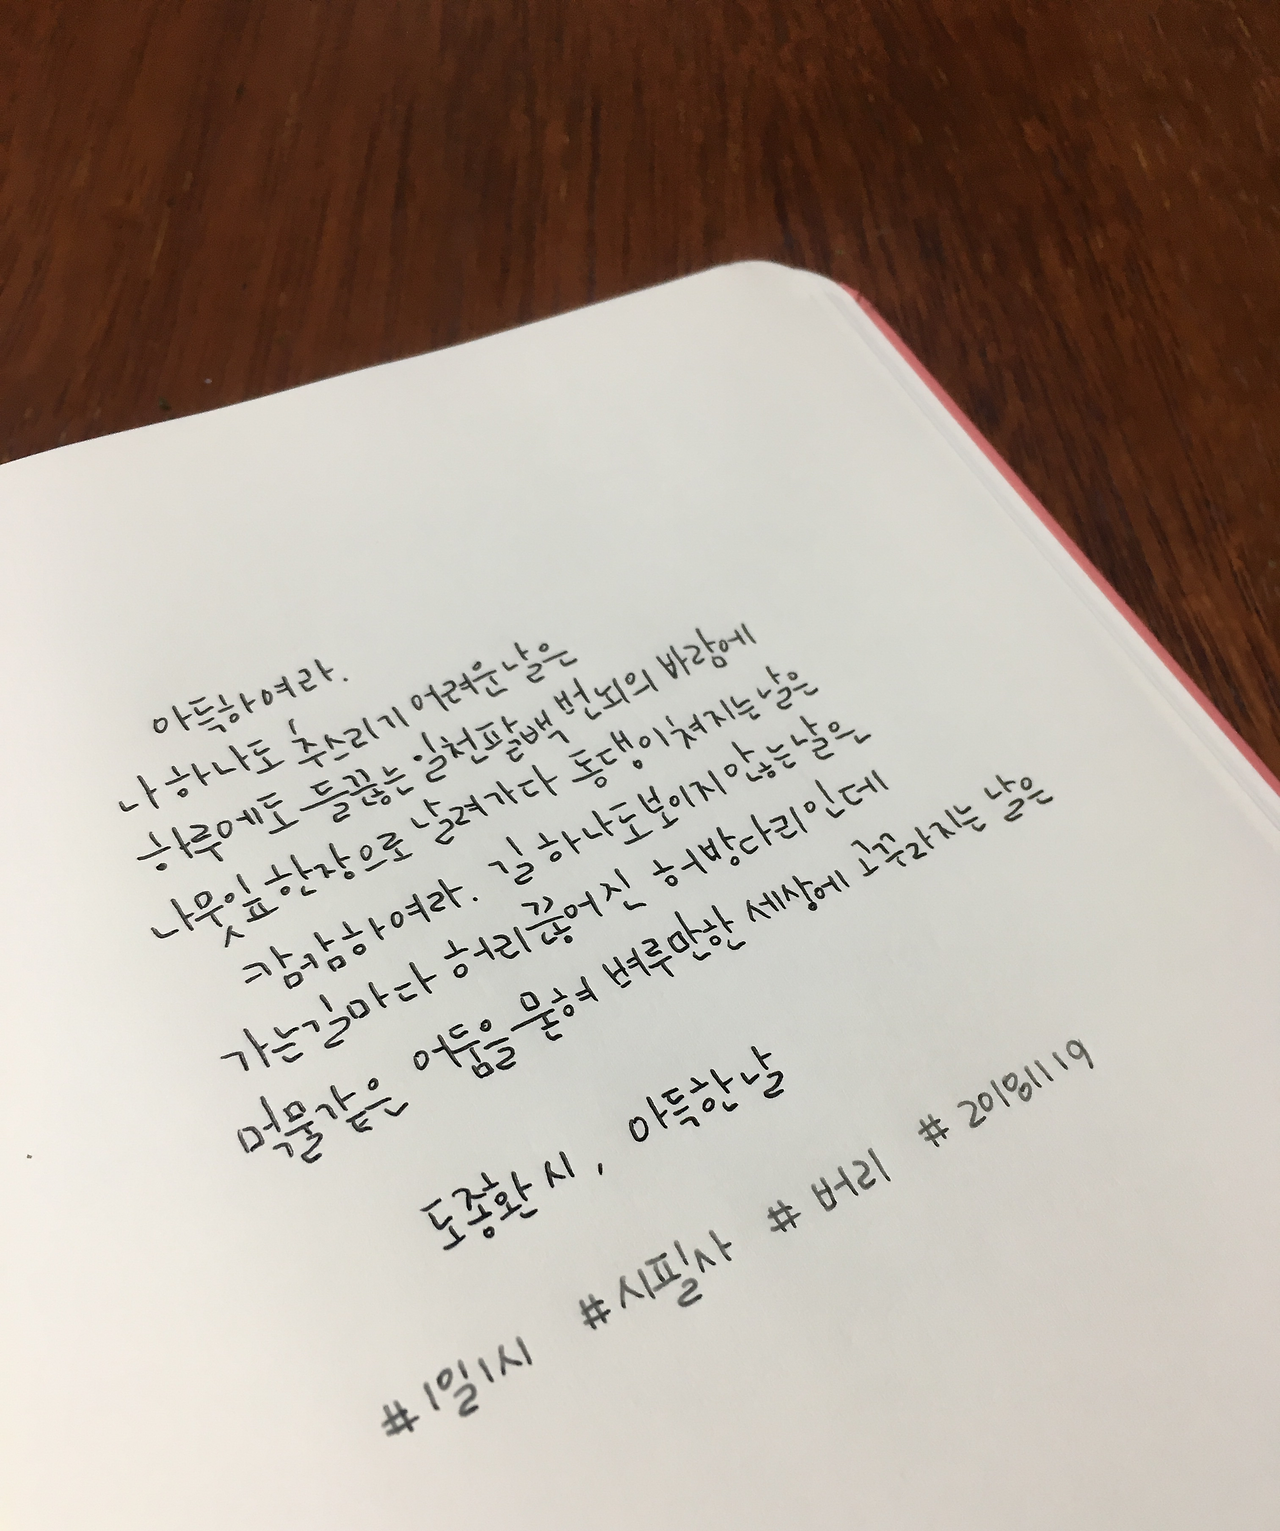 아득하여라.
나 하나도 추스리기 어려운 날은
하루에도 들끓는 일천팔백 번뇌의 바람에
나뭇잎 한장으로 날려가다 동댕이쳐지는 날은
캄캄하여라. 길 하나도 보이지 않는 날은
가는 길마다 허리 끊어진 허방다리인데
먹물같은 어둠을 묻혀 벼루만한 세상에 고꾸라지는 날은
도종환 시, 아득한 날
#1일1시 #시필사 #버리 #20181119